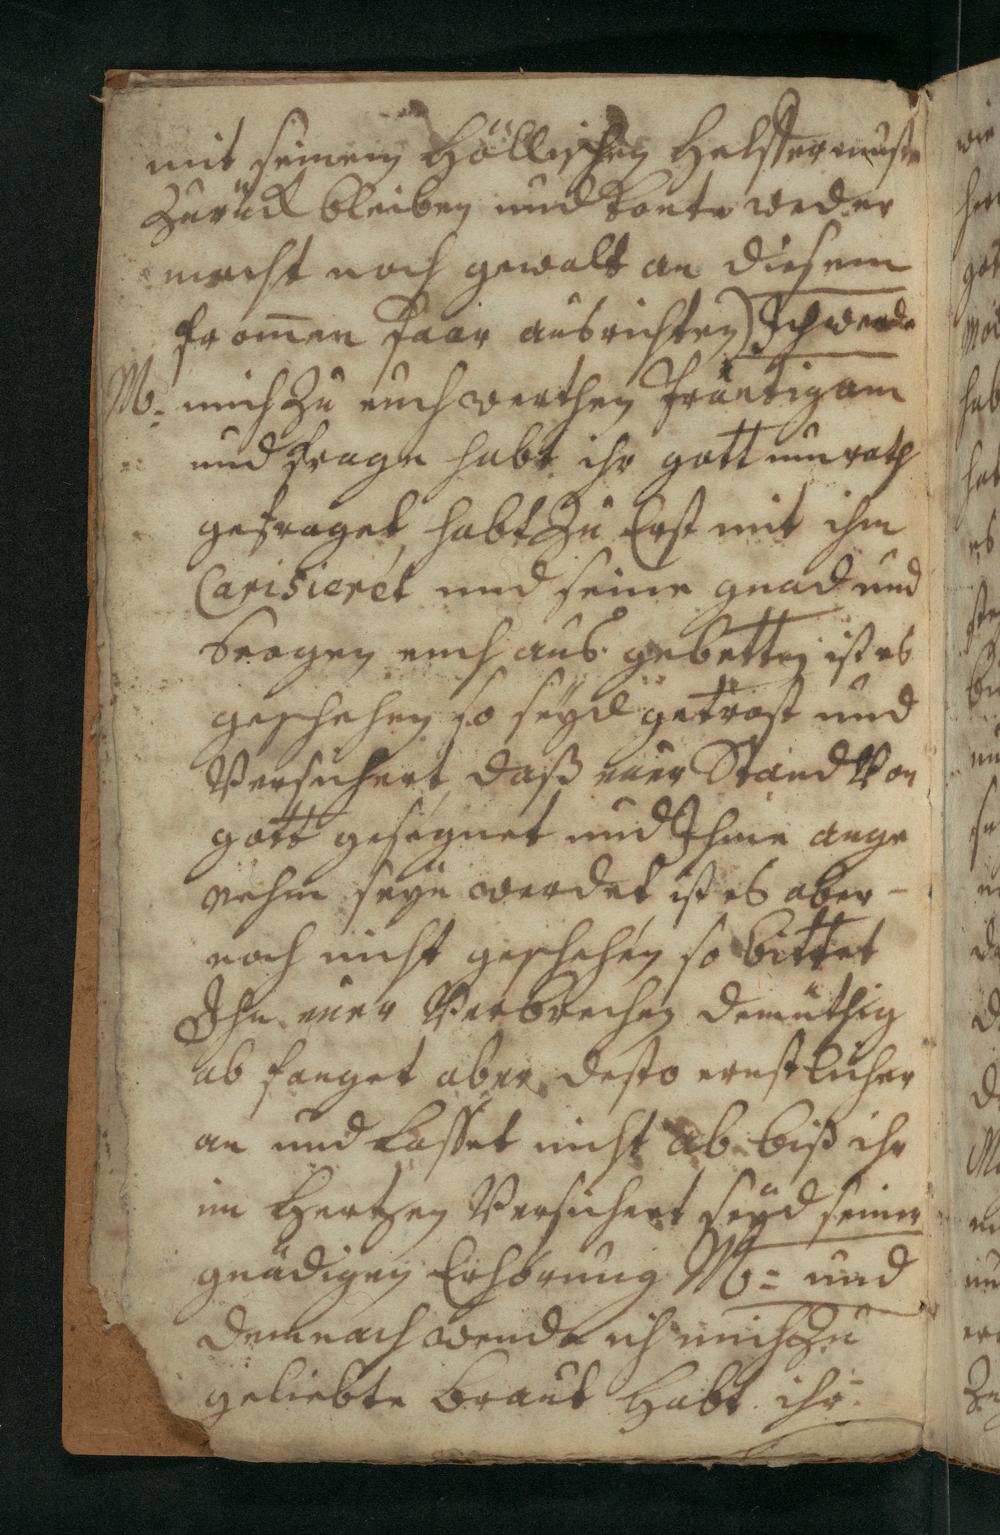 mit seinem Höllischen Helffer muste
Zurück bleiben und konte weder
macht noch gewalt an diesem
from̄en paar ausrichten) Ich wende
M: mich Zu euch werthen Präutigam
und frage habt ihr gott um rath
gefraget, habt Zu Erst mit ihm
Carisieret und seine gnad und
Seegen euch aus gebetten ist es
geschehen so seyd getrost und
Versichert daß euer Stand Von
gott gesegnet und Ihme ange
nehm seyn werdet ist es aber
noch nicht geschehen so bittet
Ihn euer Verbrechen demüthig
ab fanget aber desto ernstlicher
an und Lasset nicht ab biß ihr
im Hertzen Versichert seyd seiner
gnädigen Erhörung M: und
demnach wende ich mich Zu
geliebte Braut Habt ihr